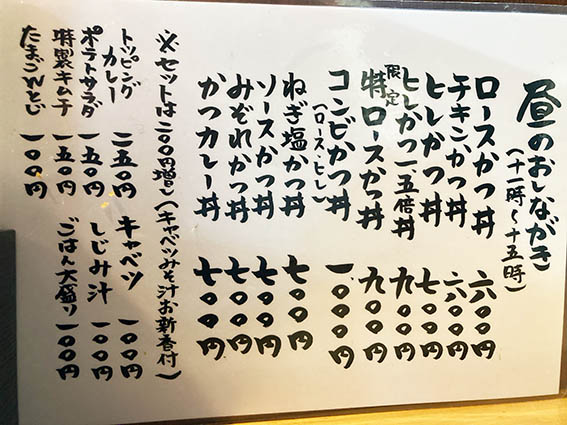 昼のおしながき
(十一時〜十五時)
ロースかつ丼 六〇〇円
チキンかつ丼 六〇〇円
ヒレかつ丼 七〇〇円
ヒレかつ一、五倍丼 九〇〇円
限定 特ロースかつ丼 九〇〇円
コンビかつ丼 一〇〇〇円
(ロース・ヒレ)
ねぎ塩かつ丼 七〇〇円
ソースかつ丼 七〇〇円
みぞれかつ丼 七〇〇円
かつカレー丼 七〇〇円
※セットは二〇〇円増し(キャベツみそ汁お新香付)
トッピング
カレー 二五〇円
ポテトサラダ 一五〇円
特製キムチ 一五〇円
たまごWとじ 一〇〇円
キャベツ 一〇〇円
しじみ汁 一〇〇円
ごはん大盛り 一〇〇円